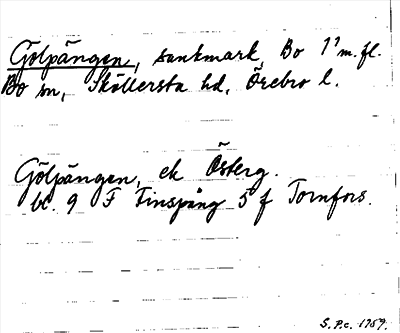 Gölpängen, sankmark, Bo 1¹ m.fl.
Bo sn, Sköllersta hd, Örebro l.
Gölpängen, ek Österg.
bl. 9 F Finspång 5 f Tornfors.
S.P.c. 1959.